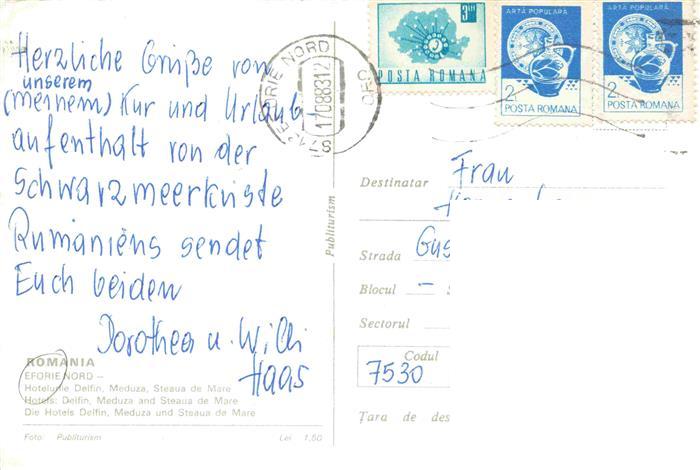 Herzliche Grüße von
unserem
(meinem) Kur und Urlaub
aufenthalt von der
Schwarzmeerküste
Rumäniens sendet
Euch beiden
Dorothea u. Willi
Haas
ROMÂNIA
EFORIE NORD –
Hotelurile Delfin, Meduza, Steaua de Mare
Hotels: Delfin, Meduza and Steaua de Mare
Die Hotels Delfin, Meduza und Steaua de Mare
Foto: Publiturism
Lei 1,50
Publiturism
EFORIE NORD
17088312
OFC
POSTA ROMANA
ARTĂ POPULARĂ
2L
POSTA ROMANA
ARTĂ POPULARĂ
2L
POSTA ROMANA
Destinatar Frau
Strada Gus
Blocul –
Sectorul
Codul
7530
Țara de des